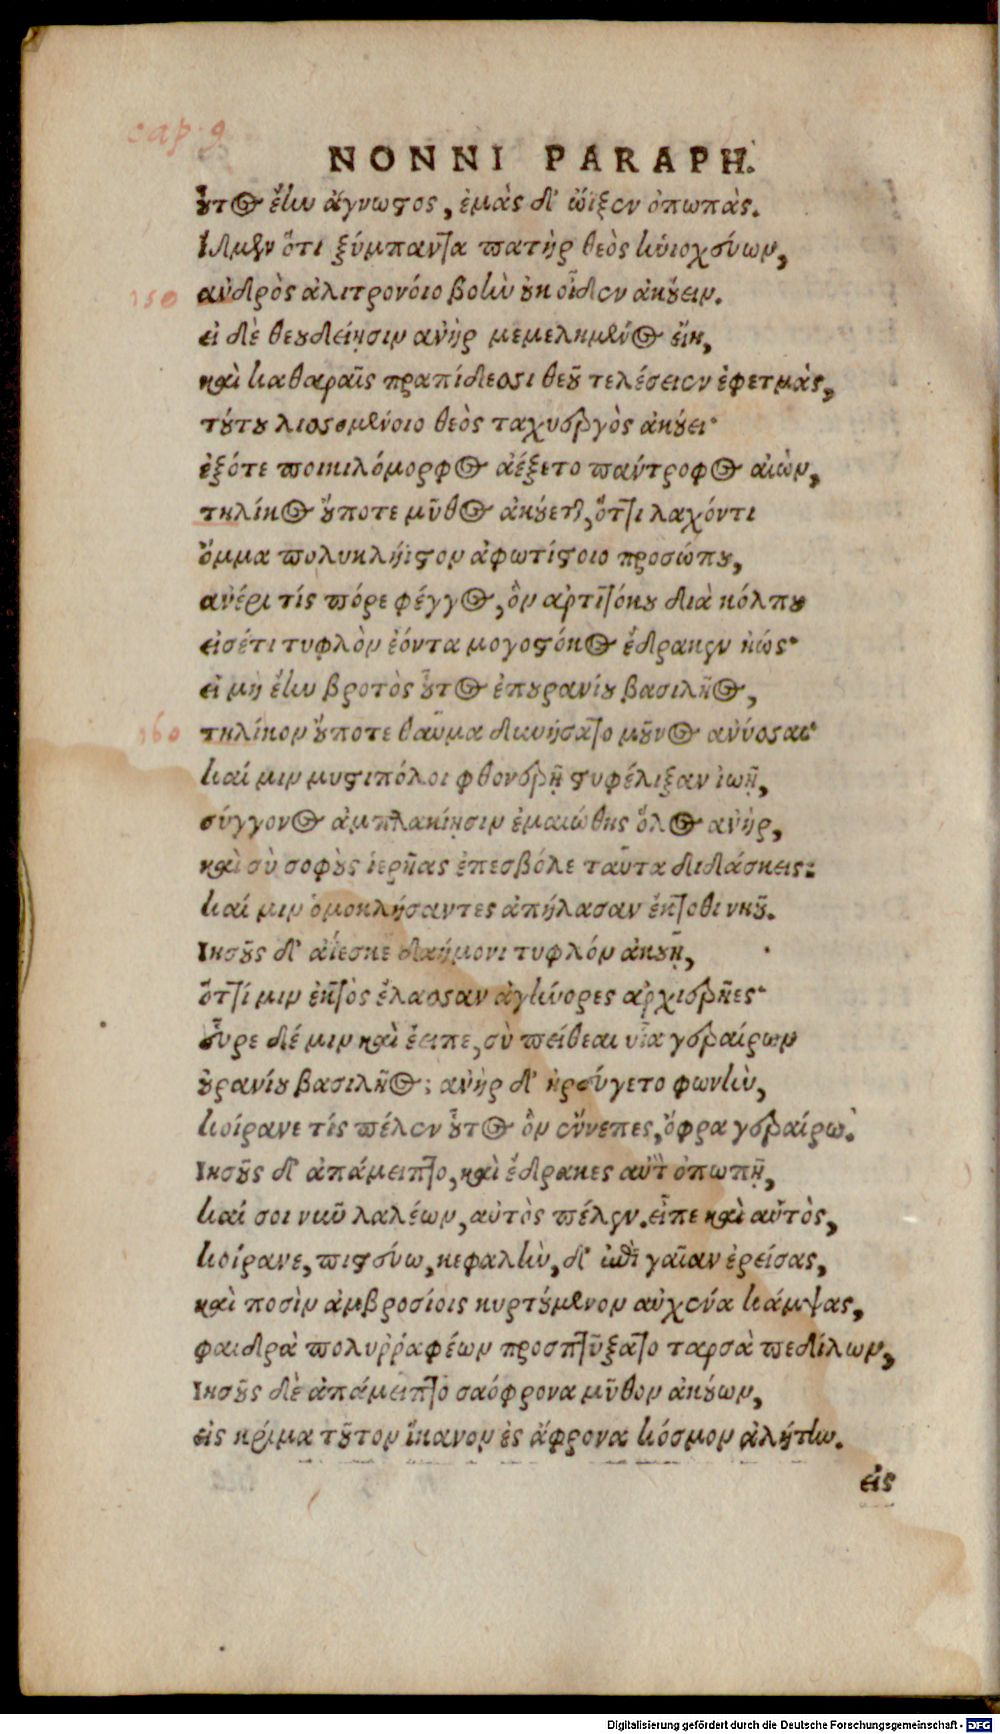 cap. 9
NONNI PARAPH.
οὗτος ἔην ἄγνωστος, ἐμὰς δ' ὤϊξεν ὀπωπάς.
Ἴδμεν ὅτι ξύμπαντα πατὴρ θεὸς ἡνιοχεύων,
150 ἀνδρὸς ἀλιτρονόοιο βοὴν οὐκ οἶδεν ἀκούειν.
εἰ δὲ θεουδείῃσιν ἀνὴρ μεμελημένος εἴη,
καὶ καθαραῖς πραπίδεσσι θεοῦ τελέσειεν ἐφετμὰς,
τούτου λισσομένοιο θεὸς ταχυεργὸς ἀκούει·
ἐξότε ποικιλόμορφος ἀέξετο πάντροφος αἰὼν,
τηλίκος οὔποτε μῦθος ἀκούεται, ὅττι λαχόντι
ὄμμα πολυκλήϊστον ἀφωτίστοιο προσώπου,
ἀνέρι τίς πόρε φέγγος, ὃν ἀρτιτόκου διὰ κόλπου
εἰσέτι τυφλὸν ἐόντα μογοστόκος ἔδρακεν ἠώς·
εἰ μὴ ἔην βροτὸς οὗτος ἐπουρανίου βασιλῆος,
160 τηλίκον οὔποτε θαῦμα δυνήσατο μοῦνος ἀνύσσαι·
καί μιν μυστιπόλοι φθονερῇ στυφέλιξαν ἰωῇ,
σύγγονος ἀμπλακίῃσιν ἐμαιώθης ὅλος ἀνὴρ,
καὶ σὺ σοφοὺς ἱερῆας ἐπεσβόλε ταῦτα διδάσκεις:
καί μιν ὁμοκλήσαντες ἀπήλασαν ἔκτοθι νηοῦ.
Ιησοῦς δ' ἀΐεσκε δαήμονι τυφλὸν ἀκουῇ,
ὅττί μιν ἐκτὸς ἔλασσαν ἀγήνορες ἀρχιερῆες·
εὗρε δέ μιν καὶ ἔειπε, σὺ πείθεαι υἷα γεραίρων
οὐρανίου βασιλῆος; ἀνὴρ δ' ἠρεύγετο φωνὴν,
κοίρανε τίς πέλεν οὗτος ὃν ἔννεπες, ὄφρα γεραίρω.
Ιησοῦς δ' ἀπάμειπτο, καὶ ἔδρακες αὐτὸν ὀπωπῇ,
καί σοι νῦν λαλέων, αὐτὸς πέλεν. εἶπε καὶ αὐτὸς,
κοίρανε, πιστεύω, κεφαλὴν, δ' ἐπὶ γαῖαν ἐρείσας,
καὶ ποσὶν ἀμβροσίοις κυρτούμενον αὐχένα κάμψας,
φαιδρὰ πολυῤῥαφέων προσπτύξατο ταρσὰ πεδίλων,
Ιησοῦς δὲ ἀπάμειπτο σαόφρονα μῦθον ἀκούων,
εἰς κρίμα τοῦτον ἵκανον ἐς ἄφρονα κόσμον ἀλήτην.
εἰς
Digitalisierung gefördert durch die Deutsche Forschungsgemeinschaft - DFG